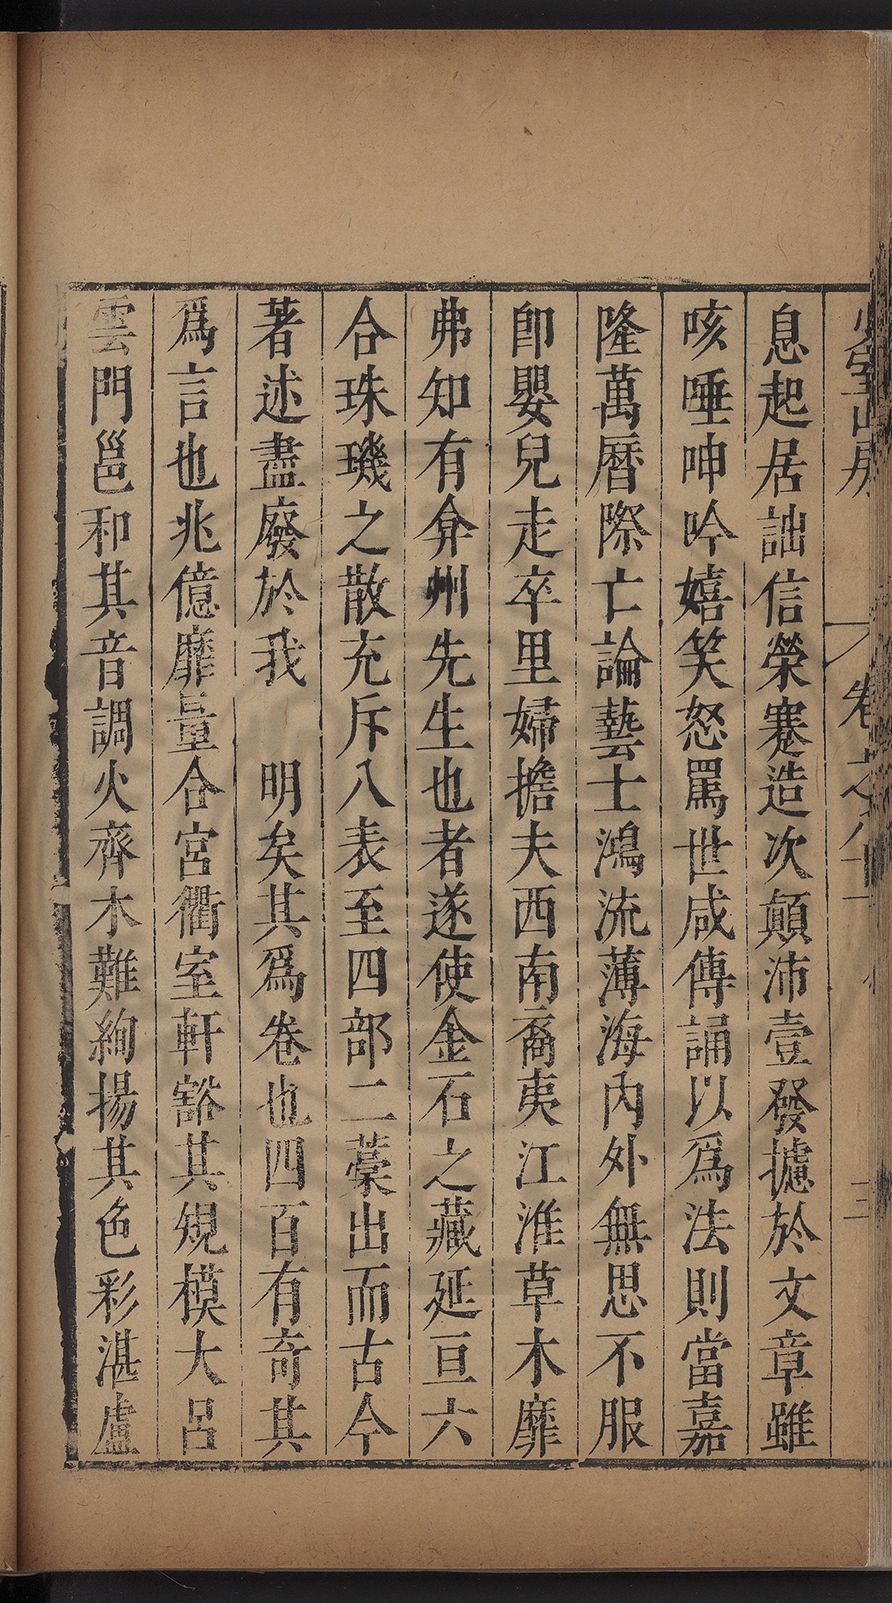 息起居詘信榮蹇造次顛沛壹發攄於文章雖
咳唾呻吟嬉笑怒罵世咸傳誦以爲法則當嘉
隆萬曆際亡論藝士鴻流薄海內外無思不服
卽嬰兒走卒里婦擔夫西南裔夷江淮草木靡
弗知有弇州先生也者遂使金石之藏延亘六
合珠璣之散充斥八表至四部二藁出而古今
著述盡廢於我　明矣其爲卷也四百有奇其
爲言也兆億靡量合宮衢室軒豁其規模大呂
雲門邕和其音調火齊木難絢揚其色彩湛盧